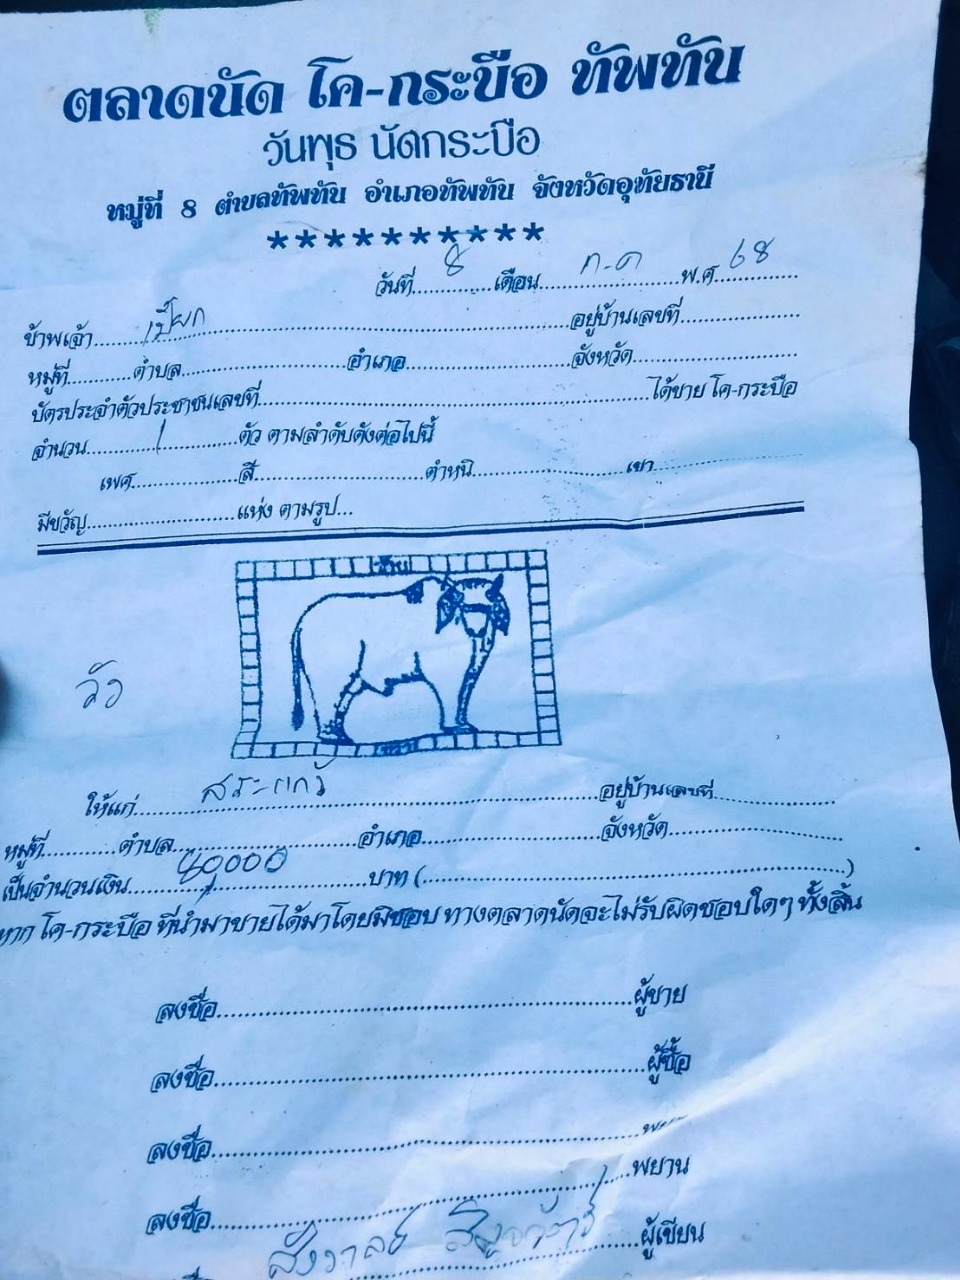 ตลาดนัด โค-กระบือ ทัพทัน
วันพุธ นัดกระบือ
หมู่ที่ 8 ตำบลทัพทัน อำเภอทัพทัน จังหวัดอุทัยธานี
**********
วันที่ 8 เดือน ต.ค พ.ศ. 68
ข้าพเจ้า เปี๊ยก อยู่บ้านเลขที่
หมู่ที่ ตำบล อำเภอ จังหวัด
บัตรประจำตัวประชาชนเลขที่ ได้ขาย โค-กระบือ
จำนวน 1 ตัว ตามลำดับดังต่อไปนี้
เพศ สี ตำหนิ เขา
มีขวัญ แห่ง ตามรูป...
ซ้าย
วัว
ขวา
ให้แก่ สระแก้ว อยู่บ้านเลขที่
หมู่ที่ ตำบล อำเภอ จังหวัด
เป็นจำนวนเงิน 40000 บาท ( )
หาก โค-กระบือ ที่นำมาขายได้มาโดยมิชอบ ทางตลาดนัดจะไม่รับผิดชอบใดๆ ทั้งสิ้น
ลงชื่อ ผู้ขาย
ลงชื่อ ผู้ซื้อ
ลงชื่อ
ลงชื่อ พยาน
ผู้เขียน